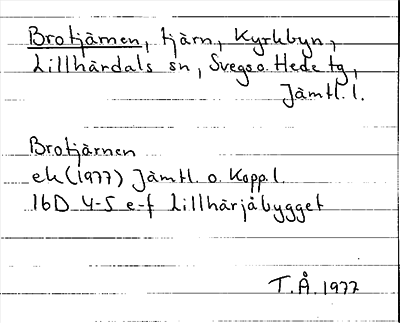 Brotjärnen, tjärn, Kyrkbyn,
Lillhärdals sn, Svegs o. Hede tg,
Jämtl. l.
Brotjärnen
ek (1977) Jämtl. o. Kopp. l.
16D 4-5 e-f Lillhärjåbygget
T.Å. 1977